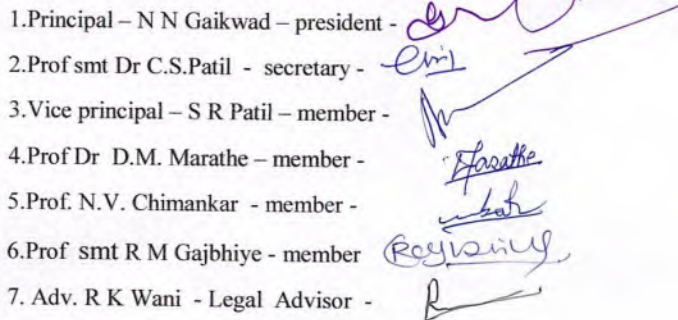 1.Principal – N N Gaikwad – president -
2.Prof smt Dr C.S.Patil - secretary -
3.Vice principal – S R Patil – member -
4.Prof Dr D.M. Marathe – member - Marathe
5.Prof. N.V. Chimankar - member -
6.Prof smt R M Gajbhiye - member
7. Adv. R K Wani - Legal Advisor -